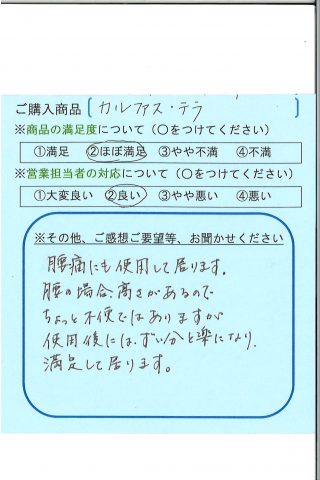 ご購入商品〔カルファス・テラ〕
※商品の満足度について（○をつけてください）
①満足 ②ほぼ満足 ③やや不満 ④不満
※営業担当者の対応について（○をつけてください）
①大変良い ②良い ③やや悪い ④悪い
※その他、ご感想ご要望等、お聞かせください
腰痛にも使用して居ります。
腰の場合、高さがあるので
ちょっと不便ではありますが
使用後には、ずい分と楽になり、
満足して居ります。